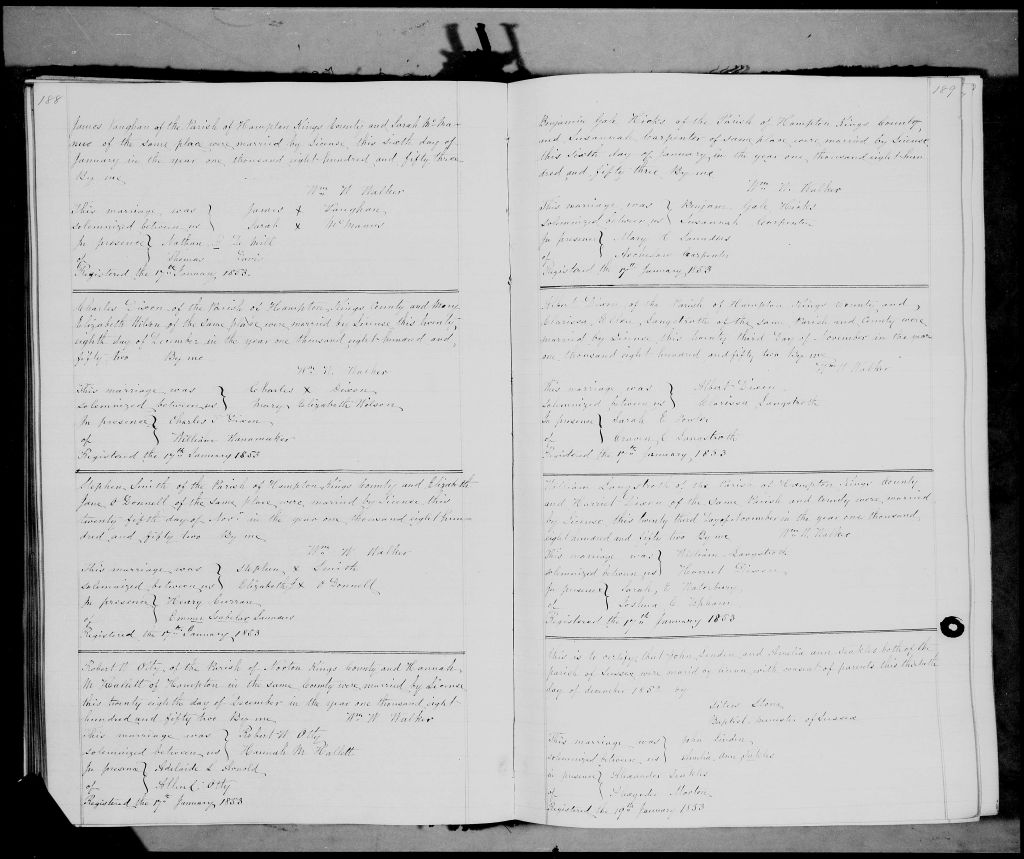 188
James Vaughan of the Parish of Hampton Kings County and Sarah Mc Ma-
nus of the same place were married by License this sixth day of
January in the year one thousand eight hundred and fifty three
By me
Wm W. Walker
This marriage was } James X Vaughan
solemnized between us } Sarah X McManus
In presence } Nathan De Mill
of } Thomas Davis
Registered the 17th January 1853
Charles Dixon of the Parish of Hampton Kings County and Mary
Elizabeth Wilson of the Same place were married by License this twenty
eighth day of December in the year one thousand eight hundred and,
fifty two By me
Wm W. Walker
This marriage was } Charles X Dixon
solemnized between us } Mary Elizabeth Wilson
In presence } Charles T Dixon
of } William Hanamaker
Registered the 17th January 1853
Stephen Smith of the Parish of Hampton Kings County and Elizabeth
Jane O Donnell of the same place were married by License this
twenty fifth day of Novr in the year one thousand eight hun-
dred and fifty two By me
Wm W. Walker
This marriage was } Stephen X Smith
solemnized between us } Elizabeth J X O Donnell
In presence } Henry Curran
of } Emma Isabelar Saunders
Registered the 17th January 1853
Robert W Otty of the Parish of Norton Kings County and Hannah
M Hallett of Hampton in the same County were married by License
this twenty eighth day of December in the year one thousand eight
hundred and fifty two By me Wm W. Walker
This marriage was } Robert W Otty
solemnized between us } Hannah M Hallett
In presence } Adelaide L Arnold
of } Allen C Otty
Registered the 17th January 1853
189
Benjamin Gale Hicks of the Parish of Hampton Kings County,
and Susannah Carpenter of same place were married by License
this sixth day of January in the year one thousand eight hun
dred and fifty three By me
Wm W. Walker
This marriage was } Benjamn Gale Hicks
solemnized between us } Susannah Carpenter
In presence } Mary A Saunders
of } Carpenter
Registered the 17th January 1853
Albert Dixon of the Parish of Hampton Kings County and,
Clarissa Langstroth of the same Parish and County were
married by License this twenty third day of November in the year
one thousand eight hundred and fifty two By me
Wm W Walker
This marriage was } Albert Dixon
solemnized between us } Clarissa Langstroth
In presence } Sarah E Fowler
of } Langstroth
Registered the 17th January, 1853
William Langstroth of the Parish of Hampton Kings County
and Harriet Dixon of the Same Parish and County were married
by License this twenty third day of November in the year one thousand
eight hundred and fifty two By me Wm W. Walker
This marriage was } William Langstroth
solemnized between us } Harriet Dixon
In presence } Sarah E Waterbury
of } Joshua C Upham
Registered the 17th January 1853
This is to certify that John Linden and Amelia ann both of the
parish of Sussex were married with consent of parents this thirtieth
day of december 1852 by
Stone
Baptist minister of Sussex
This marriage was } John Linden
solemnized between us } Amelia Ann
In presence } Alexander
of } Morton
Registered the 19th January 1853